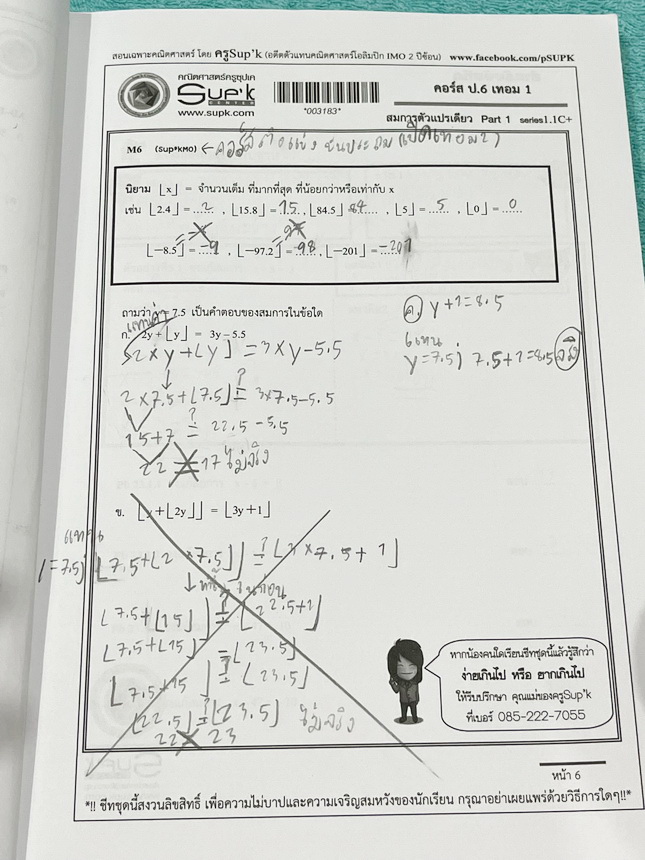 สอนเฉพาะคณิตศาสตร์ โดย ครูSup'k (อดีตตัวแทนคณิตศาสตร์โอลิมปิก IMO 2 ปีซ้อน) www.facebook.com/pSUPK
คณิตศาสตร์ครูซุปเค
Sup'k
CENTER
www.supk.com
*003183*
คอร์ส ป.6 เทอม 1
สมการตัวแปรเดียว Part 1 series1.1C+
M6 (Sup*KMO) ← คอร์ส (เปิดเทอม2)
นิยาม ⌊x⌋ = จำนวนเต็ม ที่มากที่สุด ที่น้อยกว่าหรือเท่ากับ x
เช่น ⌊2.4⌋ = 2 , ⌊15.8⌋ = 15 , ⌊84.5⌋ = 84 , ⌊5⌋ = 5 , ⌊0⌋ = 0
⌊−8.5⌋ = -9 , ⌊−97.2⌋ = -98 , ⌊−201⌋ = -201
ถามว่า y = 7.5 เป็นคำตอบของสมการในข้อใด
แทนค่า
ก. 2y + ⌊y⌋ = 3y − 5.5
2×y+⌊y⌋ = 3×y−5.5
2×7.5+⌊7.5⌋ ≟ 3×7.5−5.5
15+7 ≟ 22.5−5.5
22 ≠ 17 ไม่จริง
ค. y+1=8.5
แทน
y=7.5; 7.5+1=8.5 จริง
ข. ⌊y+⌊2y⌋⌋ = ⌊3y+1⌋
แทน
y=7.5; ⌊7.5+⌊2×7.5⌋⌋ ≟ ⌊3×7.5+1⌋
⌊7.5+⌊15⌋⌋ ≟ ⌊22.5+1⌋
⌊7.5+⌊15⌋ = ⌊23.5⌋
⌊7.5+15⌋ ≟ ⌊23.5⌋
⌊22.5⌋ ≟ ⌊23.5⌋ ไม่จริง
22 ≠ 23
หากน้องคนใดเรียนชีทชุดนี้แล้วรู้สึกว่า
ง่ายเกินไป หรือ ยากเกินไป
ให้รีบปรึกษา คุณแม่ของครูSup'k
ที่เบอร์ 085-222-7055
หน้า 6
*!! ชีทชุดนี้สงวนลิขสิทธิ์ เพื่อความไม่บาปและความเจริญสมหวังของนักเรียน กรุณาอย่าเผยแพร่ด้วยวิธีการใดๆ!!*